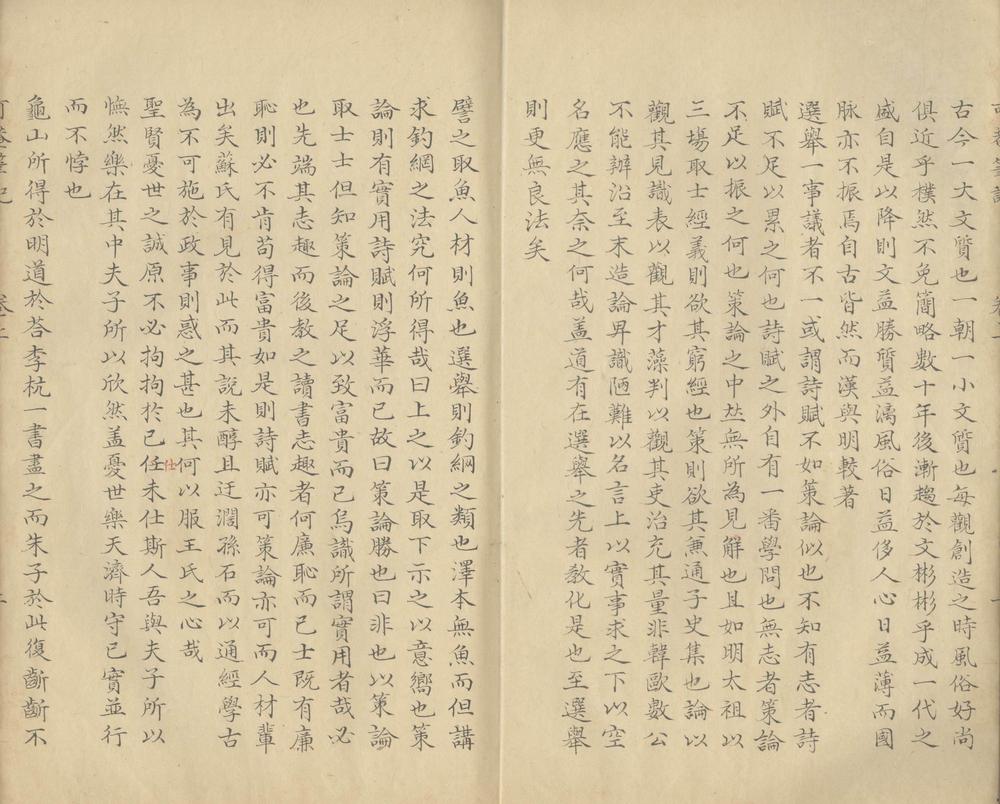 古今一大文質也一朝一小文質也每觀創造之時風俗好尚
俱近乎樸然不免簡略數十年後漸趨於文彬彬乎成一代之
盛自是以降則文益勝質益漓風俗日益侈人心日益薄而國
脉亦不振焉自古皆然而漢與明較著
選舉一事議者不一或謂詩賦不如策論似也不知有志者詩
賦不足以累之何也詩賦之外自有一番學問也無志者策論
不足以振之何也策論之中玆無所為見解也且如明太祖以
三場取士經義則欲其窮經也策則欲其兼通子史集也論以
觀其見識表以觀其才藻判以觀其吏治充其量非韓歐數公
不能辦沿至末造論卑識陋難以名言上以實事求之下以空
名應之其奈之何哉盖道有在選舉之先者教化是也至選舉
則更無良法矣
譬之取魚人材則魚也選舉則釣綱之類也澤本無魚而但講
求釣綱之法究何所得哉曰上之以是取下示之以意嚮也策
論則有實用詩賦則浮華而已故曰策論勝也曰非也以策論
取士士但知策論之足以致富貴而已烏識所謂實用者哉必
也先端其志趣而後教之讀書志趣者何廉恥而已士既有廉
恥則必不肯苟得富貴如是則詩賦亦可策論亦可而人材輩
出矣蘇氏有見於此而其說未醇且迂濶孫石而以通經學古
為不可施於政事則惑之甚也其何以服王氏之心哉
聖賢憂世之誠原不必拘拘於已任未仕斯人吾與夫子所以
仕
憮然樂在其中夫子所以欣然盖憂世樂天濟時守已實並行
而不悖也
龜山所得於明道於荅李杭一書盡之而朱子於此復齗齗不